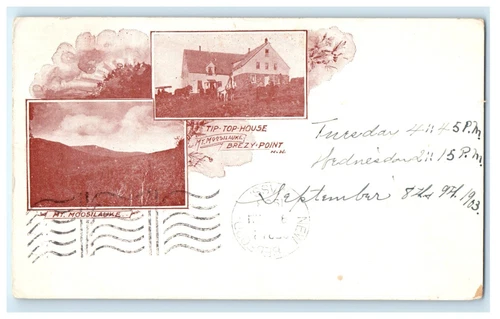 TIP-TOP-HOUSE
MT. MOOSILAUKE
BREZY-POINT
N.H.
MT. MOOSILAUKE
Tuesday 4:45 P.M.
Wednesday 2:15 P.M.
September 8th 9th 1903.
NEW